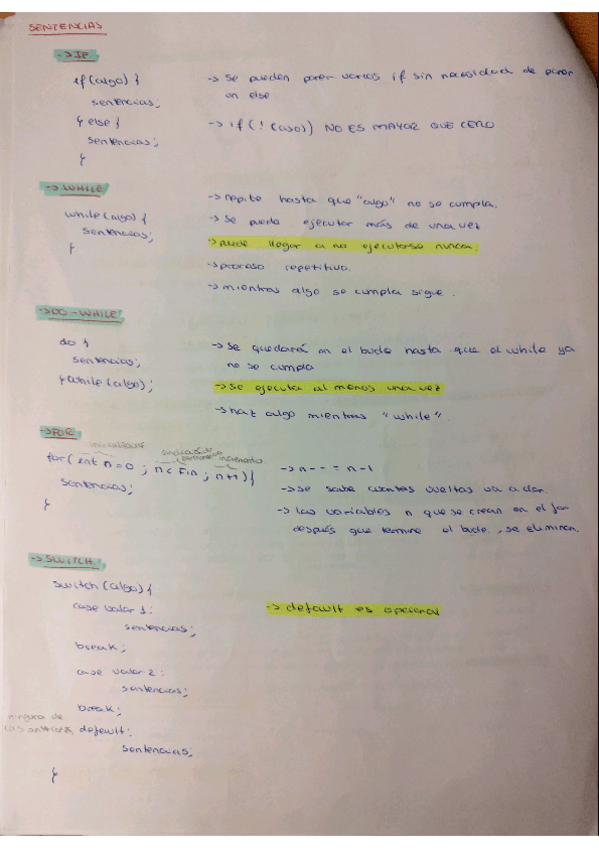 SENTENCIAS
→ IF
if (algo) {
sentencias;
} else {
sentencias;
}
→ Se pueden poner varios if sin necesidad de poner
un else
→ if (! (caso)) NO ES MAYOR QUE CERO
→ WHILE
while (algo) {
sentencias;
}
→ repite hasta que "algo" no se cumpla.
→ Se puede ejecutar más de una vez
→ puede llegar a no ejecutarse nunca.
→ proceso repetitivo.
→ mientras algo se cumpla sigue.
→ DO - WHILE
do {
sentencias;
} while (algo);
→ Se quedará en el bucle hasta que el while ya
no se cumpla
→ Se ejecuta al menos una vez
→ haz algo mientras "while".
→ FOR
incremento
for (int n=0 ; n < Fin ; n++) {
sentencias;
}
→ n-- = n-1
→ se sabe cuantas vueltas va a dar.
→ Las variables n que se crean en el for
después que termine el bucle, se eliminan.
→ SWITCH
switch (algo) {
case valor 1:
sentencias;
break;
case valor 2:
sentencias;
break;
ninguna de
las anteriores default:
sentencias;
}
→ default es opcional